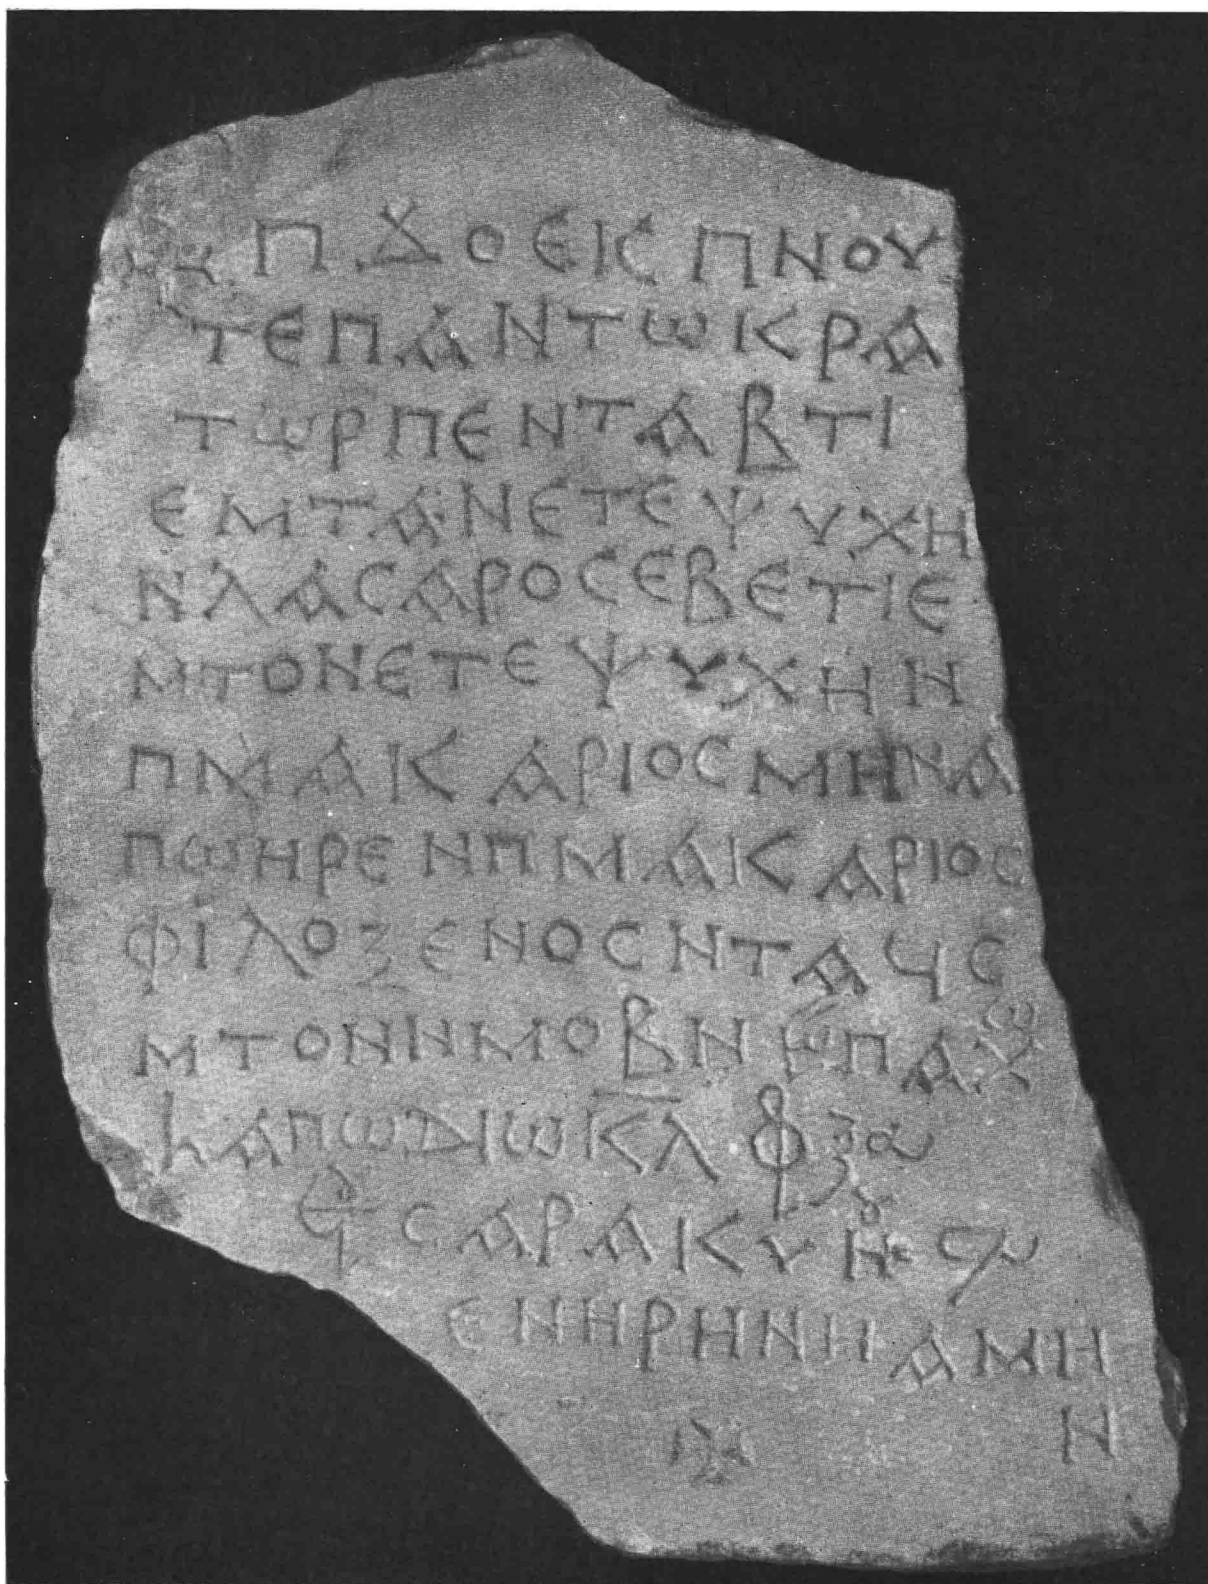 ⲠϪⲞⲈⲓⲤⲠⲚⲞⲨ
ⲦⲈⲠⲀⲚⲦⲰⲔⲢⲀ
ⲦⲰⲢⲠⲈⲚⲦⲀⲂϮ
ⲈⲘⲦⲀⲚⲈⲦⲈⲮⲨⲬⲎ
ⲚⲖⲀⲤⲀⲢⲞⲤⲈⲂⲈϮⲈ
ⲘⲦⲞⲚⲈⲦⲈⲮⲨⲬⲎⲚ
ⲠⲘⲀⲔⲀⲢⲒⲞⲤⲘⲎⲚⲀ
ⲠϢⲎⲢⲈⲚⲠⲘⲀⲔⲀⲢⲒⲞⲤ
ⲪⲒⲖⲞⲜⲈⲚⲞⲤⲚⲦⲀϤⲤ
ⲘⲦⲞⲚⲚⲘⲞⲂ
ⲀⲠⲰⲆⲒⲰⲔⲖ
ⲤⲀⲢⲀⲔⲨ
ⲈⲚⲎⲢⲎⲚⲎⲀⲘⲎ
Ⲛ